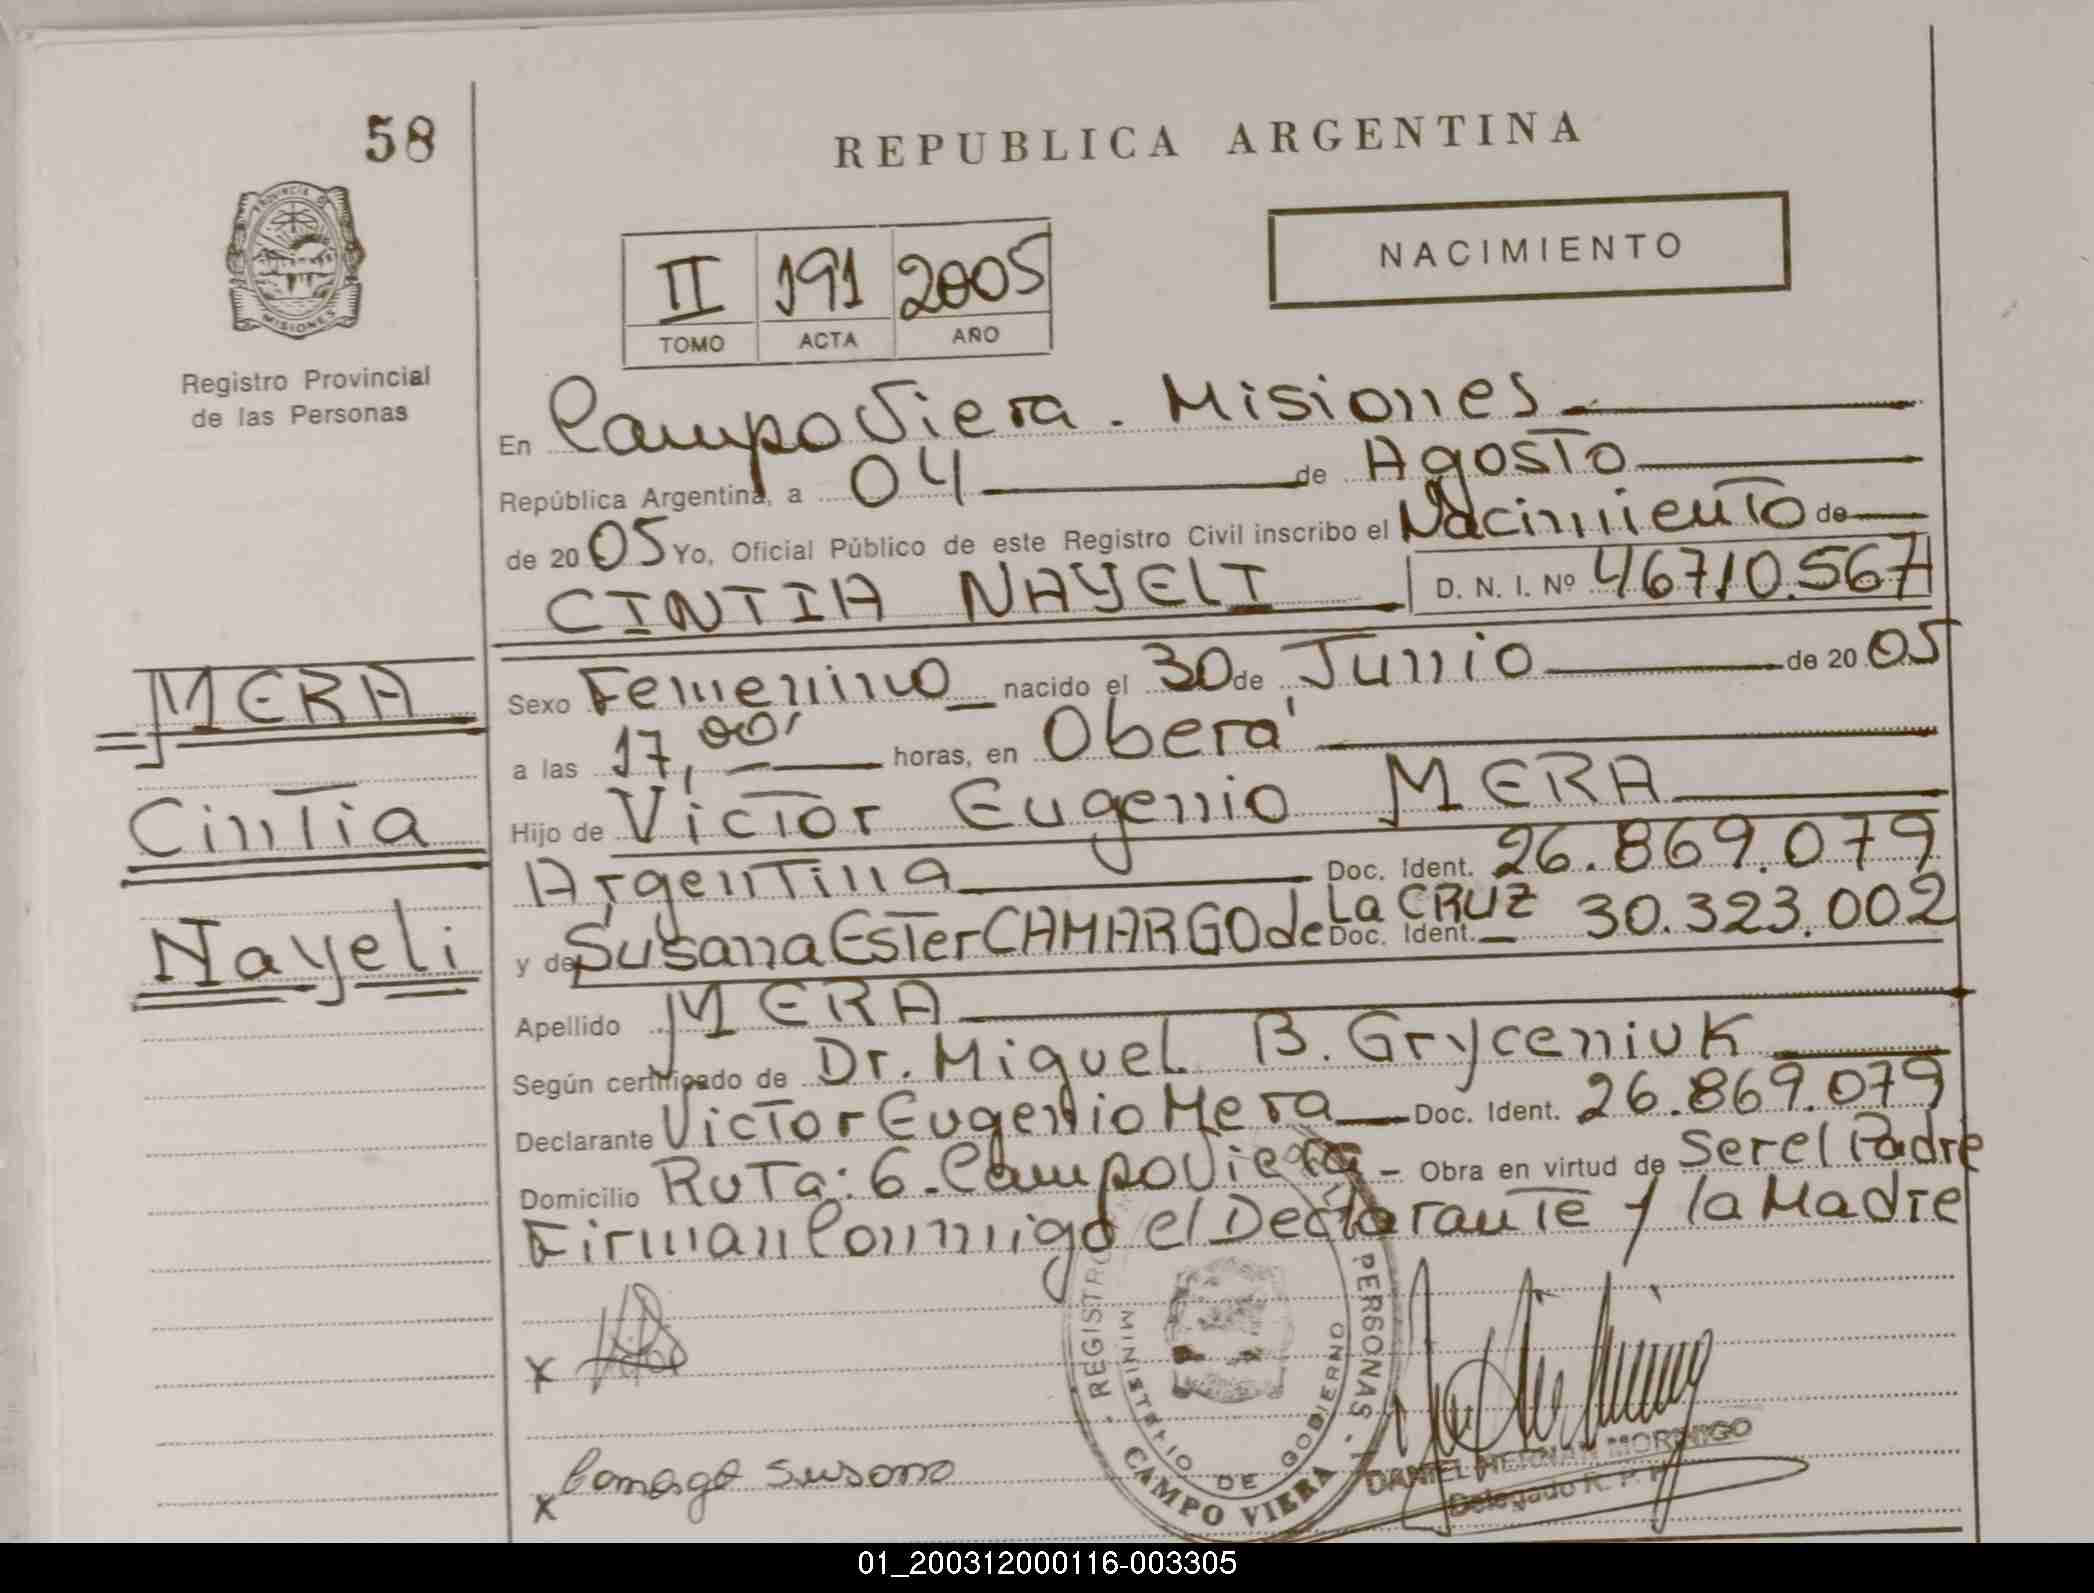 58
REPUBLICA ARGENTINA
NACIMIENTO
PROVINCIA D
MISIONES
II 191 2005
TOMO ACTA AÑO
Registro Provincial
de las Personas
En Campo Viera. Misiones
República Argentina, a 04 de Agosto
de 2005 Yo, Oficial Público de este Registro Civil inscribo el Nacimiento de
CINTIA NAYELI D. N. I. Nº 46710.567
MERA
Cintia
Nayeli
Sexo Femenino nacido el 30 de Junio de 2005
a las 17,00' horas, en Oberá
Hijo de Victor Eugenio MERA
Argentina Doc. Ident. 26.869.079
y de Susana Ester CAMARGO de La CRUZ Doc. Ident. 30.323.002
Apellido MERA
Según certificado de Dr. Miguel B. Gryceniuk
Declarante Victor Eugenio Mera Doc. Ident. 26.869.079
Domicilio Ruta: 6. Campo Viera - Obra en virtud de Ser el Padre
Firman Conmigo el Declarante y la Madre
x
x Camargo Susana
REGISTRO PERSONAS
MINISTERIO DE GOBIERNO
CAMPO VIERA
DANIEL HERNAN MORINIGO
Delegado R. P. P.
01_200312000116-003305